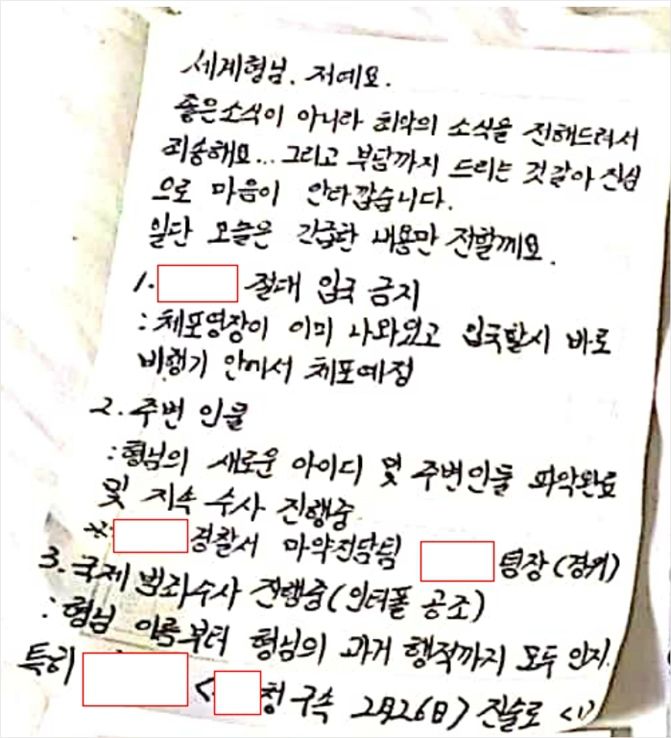 세계형님. 저예요.
좋은소식이 아니라 최악의 소식을 전해드려서
죄송해요... 그리고 부담까지 드리는 것 같아 진심
으로 마음이 안타깝습니다.
일단 오늘은 긴급한 내용만 전할께요.
1. 절대 입국 금지
: 체포영장이 이미 나와있고 입국할시 바로
비행기 안에서 체포예정
2. 주변 인물
: 형님의 새로운 아이디 및 주변인물 파악완료
및 지속 수사 진행중
※ 경찰서 마약전담팀 팀장 (경위)
3. 국제 범죄수사 진행중 (인터폴 공조)
: 형님 이름부터 형님의 과거 행적까지 모두 인지.
특히 < 청 구속 2月26日> 진술로 <1>